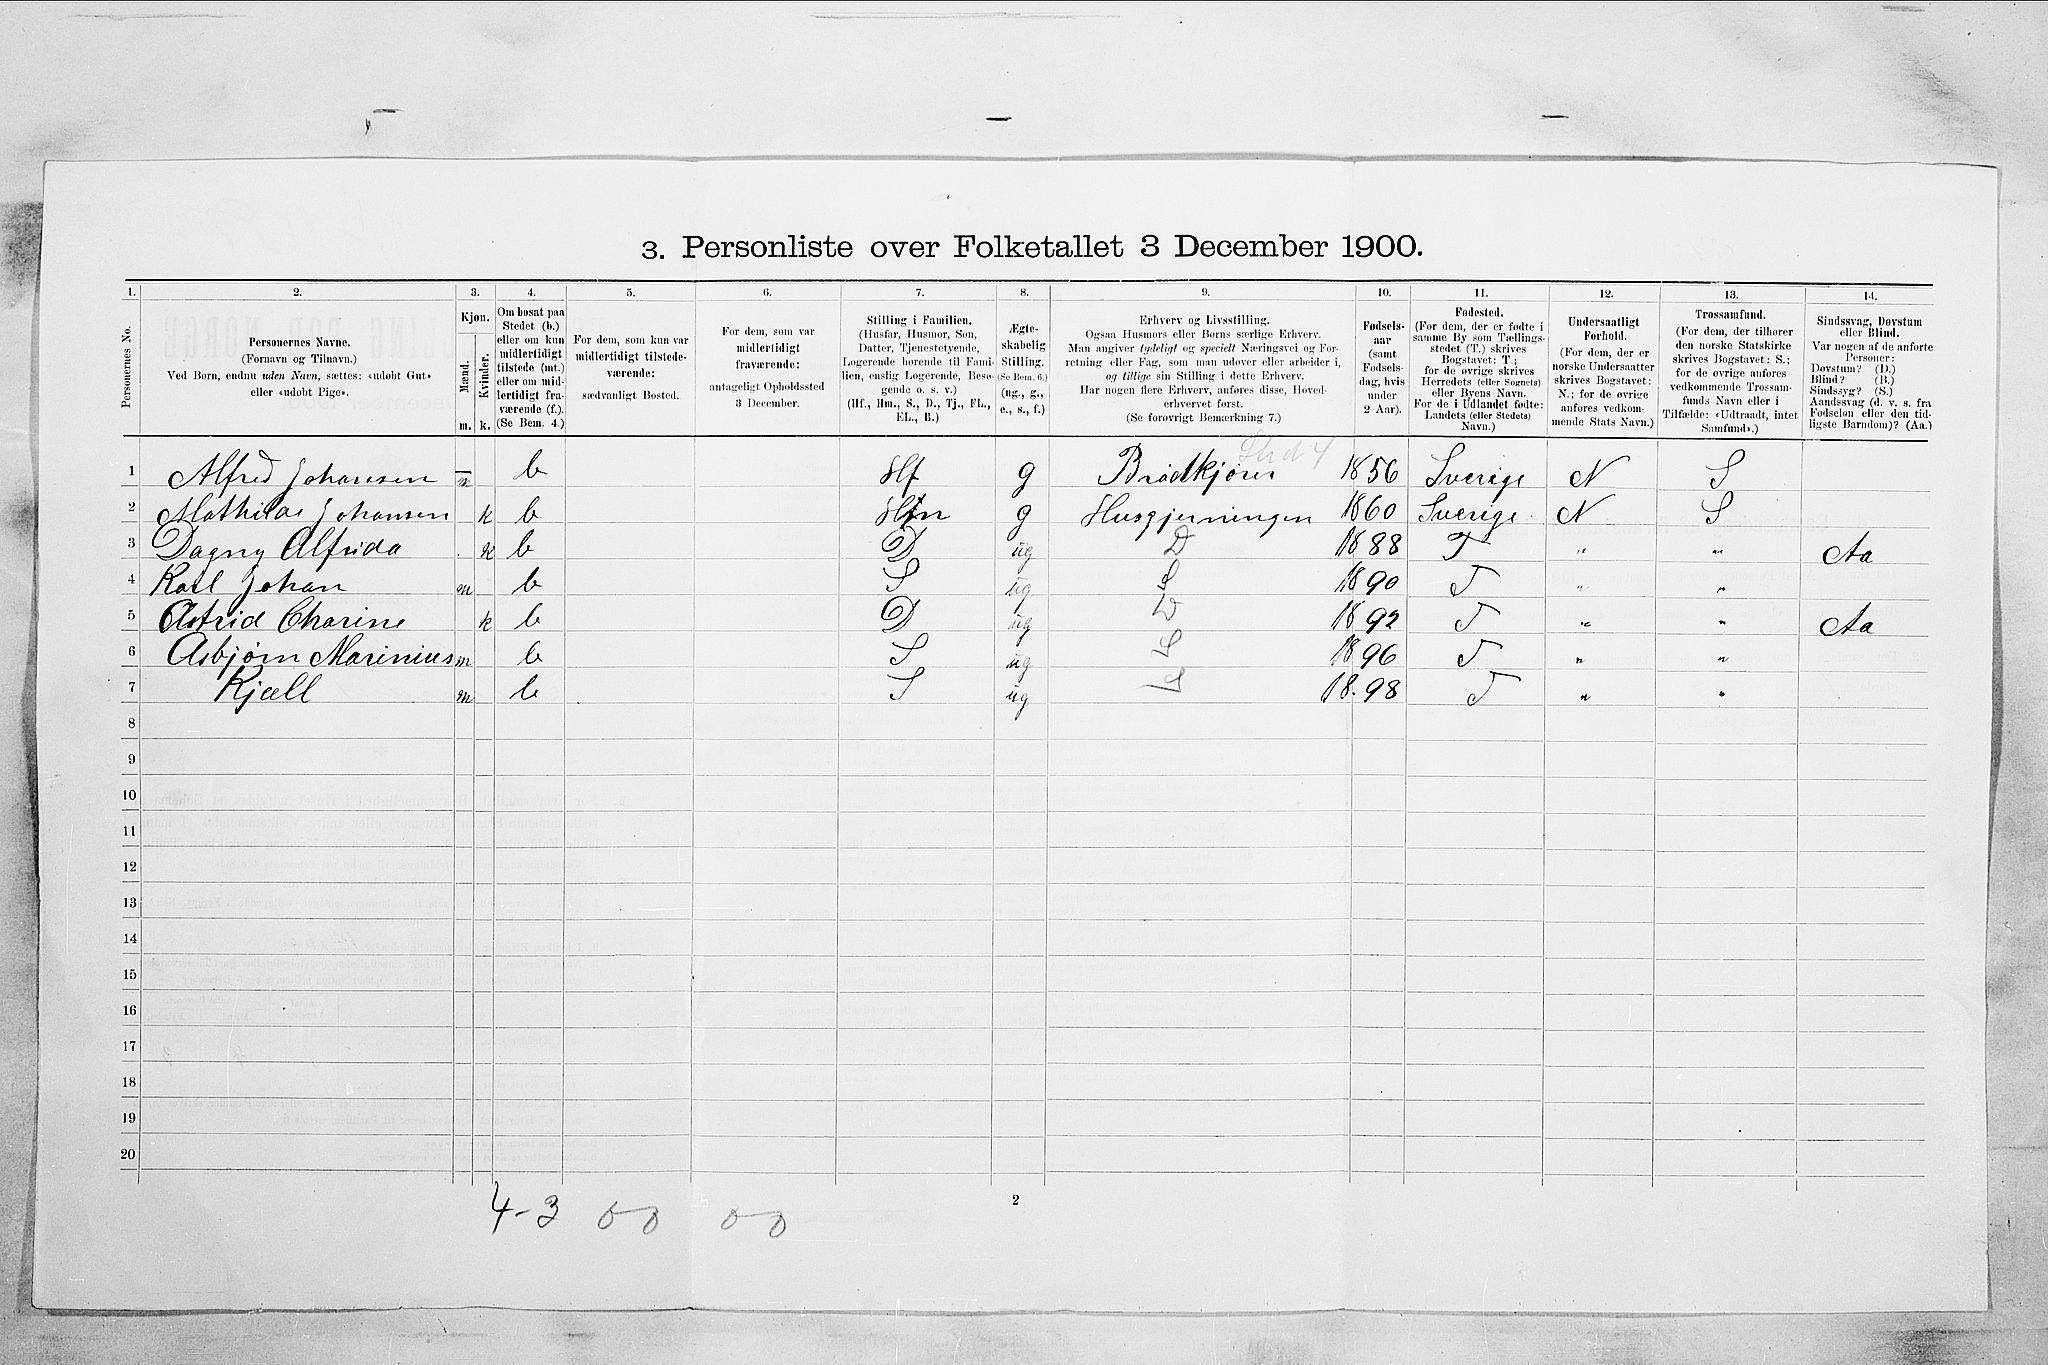 3. Personliste over Folketallet 3 December 1900.
1. 2. 3. 4. 5. 6. 7. 8. 9. 10. 11. 12. 13. 14.
Personernes No.
Personernes Navne.
(Fornavn og Tilnavn.)
Ved Børn, endnu uden Navn, sættes: «udøbt Gut»
eller «udøbt Pige».
Kjøn.
Mænd.
Kvinder.
m. k.
Om bosat paa
Stedet (b.)
eller om kun
midlertidigt
tilstede (mt.)
eller om mid-
lertidigt fra-
værende (f.).
(Se Bem. 4.)
For dem, som kun var
midlertidigt tilstede-
værende:
sædvanligt Bosted.
For dem, som var
midlertidigt
fraværende:
antageligt Opholdssted
3 December.
Stilling i Familien.
(Husfar, Husmor, Søn,
Datter, Tjenestetyende,
Logerende hørende til Fami-
lien, enslig Logerende, Besø-
gende o. s. v.)
(Hf., Hm., S., D., Tj., FL.,
EL., B.)
Ægte-
skabelig
Stilling.
(Se Bem. 6.)
(ug., g.,
e., s., f.)
Erhverv og Livsstilling.
Ogsaa Husmors eller Børns særlige Erhverv.
Man angiver tydeligt og specielt Næringsvei og For-
retning eller Fag, som man udøver eller arbeider i,
og tillige sin Stilling i dette Erhverv.
Har nogen flere Erhverv, anføres disse, Hoved-
erhvervet først.
(Se forøvrigt Bemærkning 7.)
Fødsels-
aar
(samt
Fødsels-
dag, hvis
under
2 Aar).
Fødested.
(For dem, der er fødte i
samme By som Tællings-
stedet (T.) skrives
Bogstavet: T.;
for de øvrige skrives
Herredets (eller Sognets)
eller Byens Navn.
For de i Udlandet fødte:
Landets (eller Stedets)
Navn.)
Undersaatligt
Forhold.
(For dem, der er
norske Undersaatter
skrives Bogstavet:
N.; for de øvrige
anføres vedkom-
mende Stats Navn.)
Trossamfund.
(For dem, der tilhører
den norske Statskirke
skrives Bogstavet: S.;
for de øvrige anføres
vedkommende Trossam-
funds Navn eller i
Tilfælde: «Udtraadt, intet
Samfund».)
Sindssvag, Døvstum
eller Blind.
Var nogen af de anførte
Personer:
Døvstum? (D.)
Blind? (B.)
Sindssyg? (S.)
Aandssvag (d. v. s. fra
Fødselen eller den tid-
ligste Barndom)? (Aa.)
1 Alfred Johansen m b Hf g Brødkjører 1856 Sverige N S
2 Mathilde Johansen k b Hm g Husgjerningen 1860 Sverige N S
3 Dagny Alfrida k b D ug D 1888 T " " Aa
4 Karl Johan m b S ug S 1890 T " "
5 Astrid Charine k b D ug D 1892 T " " Aa
6 Asbjørn Marinius m b S ug S 1896 T " "
7 Kjæll m b S ug S 18.98 T " "
8
9
10
11
12
13
14
15
16
17
18
19
20
4-3 0 0 0 0
2